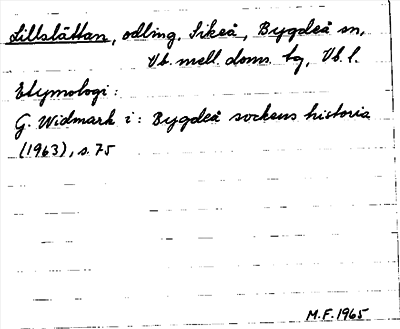 Lillslåttan, odling, Sikeå, Bygdeå sn,
Vb. mell. doms. tg, Vb. l.
Etymologi:
G. Widmark i: Bygdeå sockens historia
(1963), s. 75
M.F. 1965